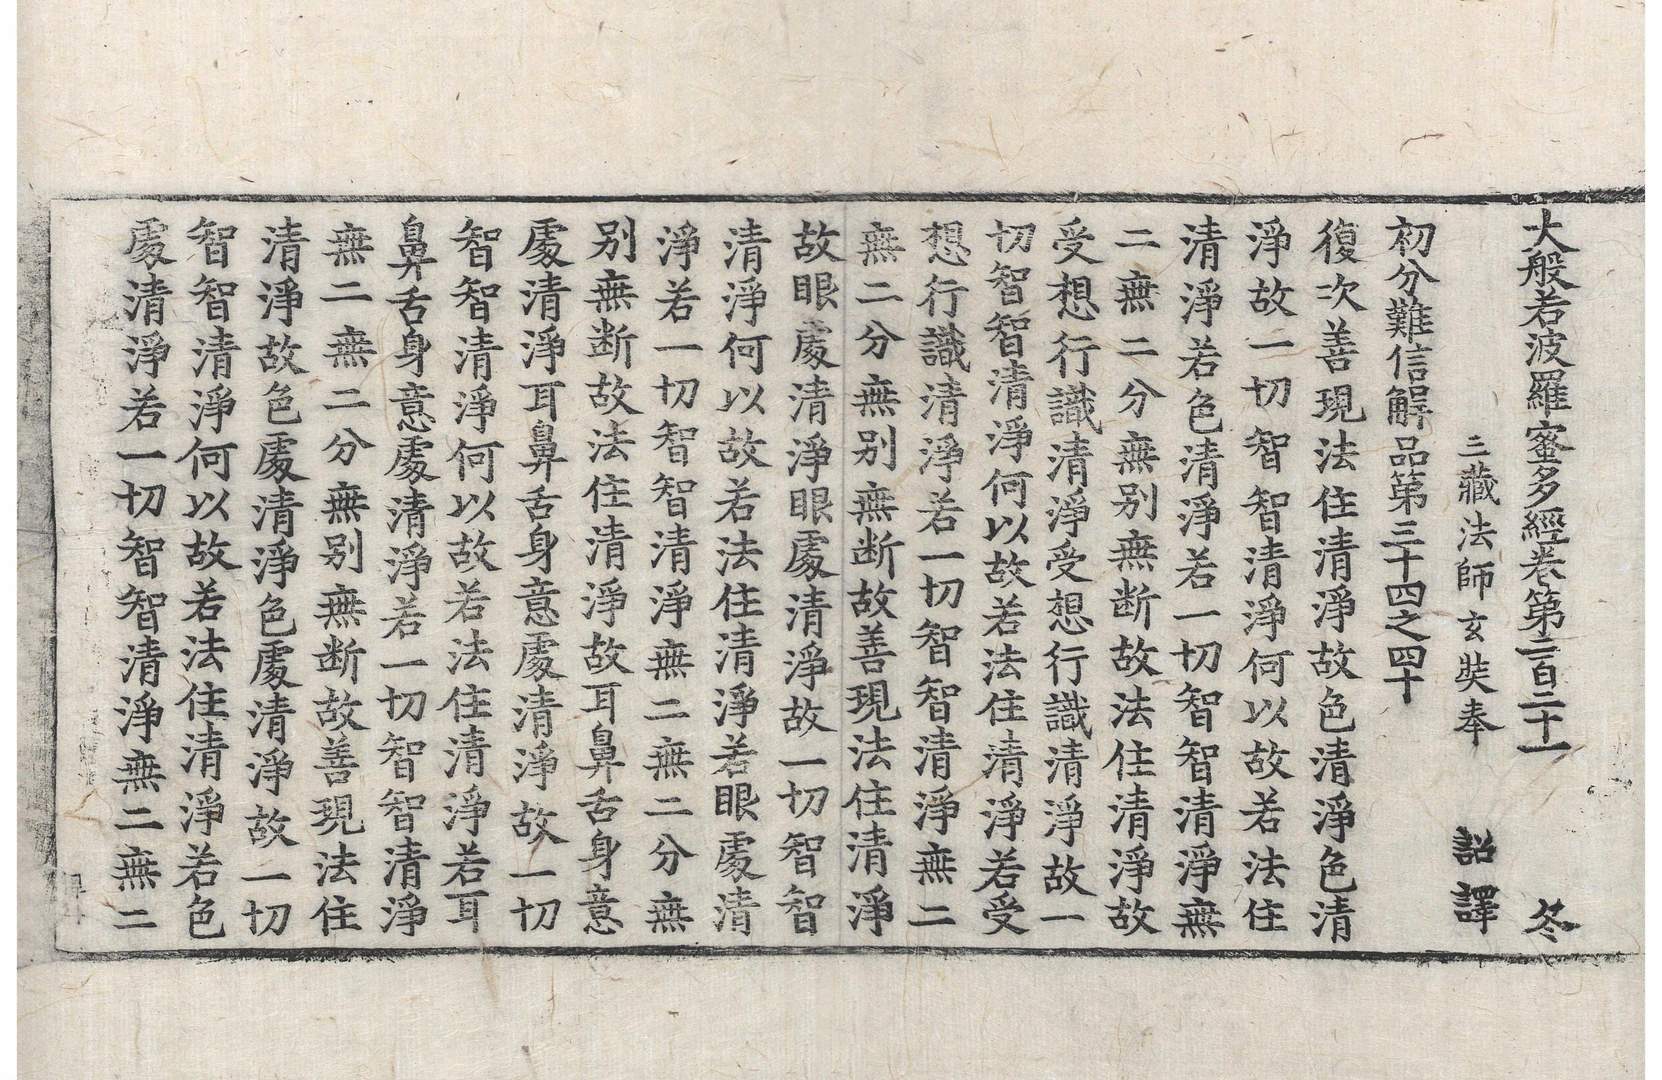 大般若波羅蜜多經卷第二百二十一　冬
三藏法師玄奘奉　詔譯
初分難信解品第三十四之四十
復次善現法住清淨故色清淨色清
淨故一切智智清淨何以故若法住
清淨若色清淨若一切智智清淨無
二無二分無别無断故法住清淨故
受想行識清淨受想行識清淨故一
切智智清淨何以故若法住清淨若受
想行識清淨若一切智智清淨無二
無二分無别無断故善現法住清淨
故眼處清淨眼處清淨故一切智智
清淨何以故若法住清淨若眼處清
淨若一切智智清淨無二無二分無
别無断故法住清淨故耳鼻舌身意
處清淨耳鼻舌身意處清淨故一切
智智清淨何以故若法住清淨若耳
鼻舌身意處清淨若一切智智清淨
無二無二分無别無断故善現法住
清淨故色處清淨色處清淨故一切
智智清淨何以故若法住清淨若色
處清淨若一切智智清淨無二無二